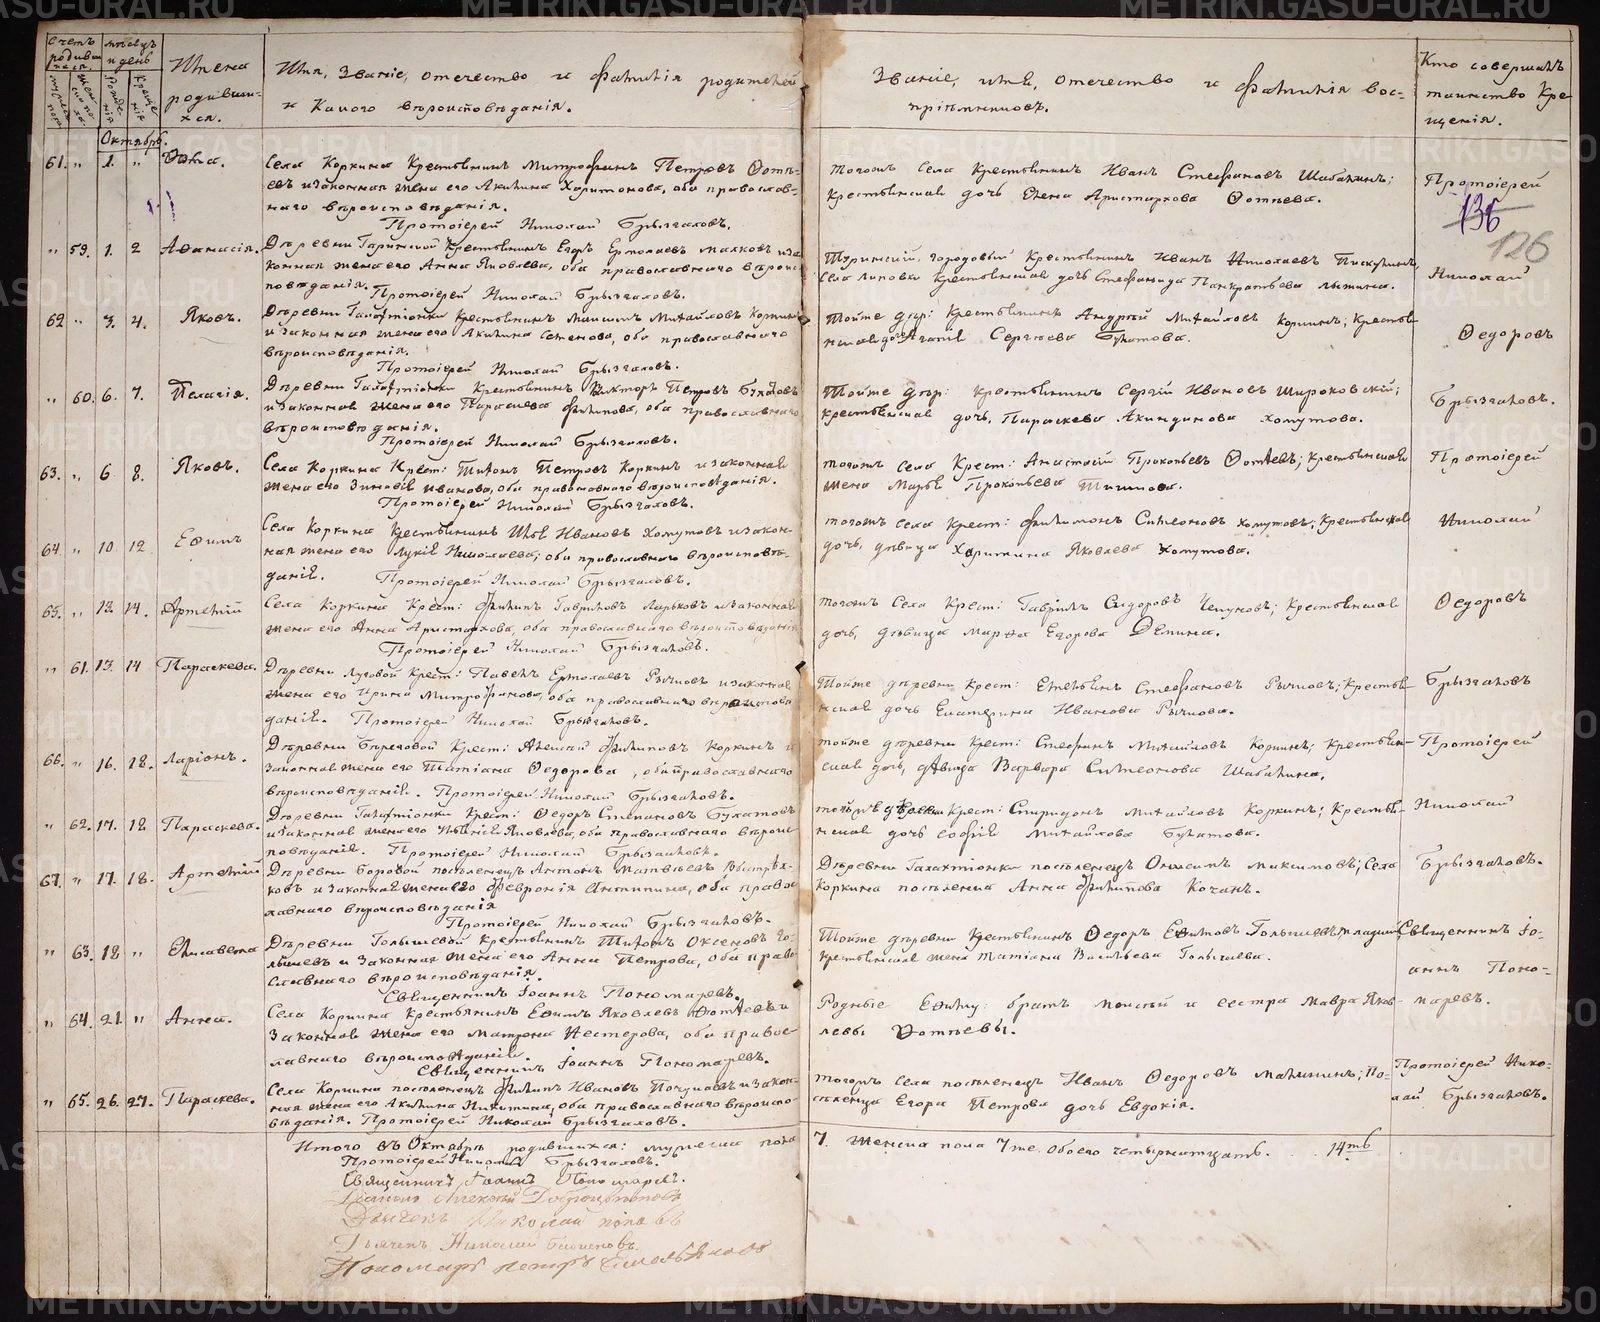 Счетъ родивших­ся.
мѣсяцъ и день
Имена родивших­ся.
Имя, Званіе, отечество и фамилія родителей
и какого вѣроисповѣданія.
Званіе, имя, отечество и фамилія вос-
пріемниковъ.
Кто совершалъ
таинство Кре-
щенія.
Октябрь.
61. " 1. "
Села Коркина Крестьянинъ Митрофанъ Петровъ Ѳотѣ-
евъ и законная жена его Акилина Харитонова, оба православ-
наго вѣроисповѣданія.
Протоіерей Николай Брызгаловъ.
тогожъ Села Крестьянинъ Иванъ Стефановъ Шабалинъ;
крестьянская дочь Елена Аристархова Ѳотѣева.
Протоіерей
136
126
" 59. 1. 2 Аѳанасія.
Деревни Гаринской Крестьянинъ Егоръ Ермолаевъ Малковъ и за-
конная жена его Анна Яковлева, оба православнаго вѣроис-
повѣданія.
Протоіерей Николай Брызгаловъ.
Туринскій, городовый крестьянинъ Иванъ Николаевъ Пискулинъ,
Села Липовки крестьянская дочь Стефанида Панкратьева
Николай
62 " 3. 4. Яковъ.
Деревни Галактіонки крестьянинъ Максимъ Михайловъ Коркинъ
и законная жена его Акилина Семенова, оба православнаго
вѣроисповѣданія.
Протоіерей Николай Брызгаловъ.
Тойже дер: крестьянинъ Андрей Михайловъ Коркинъ; крестья-
нская дочь Агапія Сергѣева Булатова.
Ѳедоровъ
" 60. 6. 7. Пелагія.
Деревни Галактіонки Крестьянинъ Викторъ Петровъ Булатовъ
и законная жена его Параскева Филипова, оба православнаго
вѣроисповѣданія.
Протоіерей Николай Брызгаловъ.
Тойже дер: крестьянинъ Сергѣй Ивановъ Широковскій;
крестьянская дочь, Параскева Акиндинова Хомутова.
Брызгаловъ.
63. " 6 8. Яковъ.
Села Коркина Крест: Титъ Петровъ Коркинъ и законная
жена его Зиновія Иванова, оба православнаго вѣроисповѣданія.
Протоіерей Николай Брызгаловъ.
тогожъ села Крест: Анастасій Прокопьевъ Ѳотѣевъ; крестьянская
жена Марья Прокопьева
Протоіерей
64 " 10. 12 Еѳимъ
Села Коркина Крестьянинъ Илья Ивановъ Хомутовъ и закон-
ная жена его Лукія Николаева, оба православнаго вѣроисповѣ-
данія. Протоіерей Николай Брызгаловъ.
тогожъ села Крест: Филимонъ Симеоновъ Хомутовъ; крестьянская
дочь, дѣвица Харитина Яковлева Хомутова.
Николай
65. " 13. 14. Артемій
Села Коркина Крест: Филипъ Гавриловъ Ларьковъ и законная
жена его Анна Аристархова, оба православнаго вѣроисповѣданія
Протоіерей Николай Брызгаловъ.
тогожъ Села Крест: Гавріилъ Сидоровъ; крестьянская
дочь, дѣвица Марѳа Егорова Демина.
Ѳедоровъ
" 61. 13. 14 Параскева.
Деревни Луговой Крест: Павелъ Ермолаевъ Рычковъ и законная
жена его Ирина Митрофанова, оба православнаго вѣроисповѣ-
данія. Протоіерей Николай Брызгаловъ.
Тойже деревни Крест: Емельянъ Стефановъ Рычковъ; крестья-
нская дочь Екатерина Иванова Рычкова.
Брызгаловъ
66. " 16. 18. Ларіонъ.
Деревни Береговой Крест: Алексѣй Филиповъ Коркинъ и
законная жена его Татіана Ѳедорова, оба православнаго
вѣроисповѣданія. Протоіерей Николай Брызгаловъ.
тойже деревни крест: Стефанъ Михайловъ Коркинъ; крестьян-
ская дочь, дѣвица Варвара Симеонова Шабалина.
Протоіерей
" 62. 17. 18 Параскева.
Деревни Галактіонки Крест: Ѳедоръ Степановъ Булатовъ
и законная жена его Яковлева, оба православнаго вѣроис-
повѣданія. Протоіерей Николай Брызгаловъ.
тойже деревни крест: Спиридонъ Михайловъ Коркинъ; крестья-
нская дочь Софія Михайлова Булатова.
Николай
67. " 17. 18. Артемій
Деревни Боровой поселенецъ Антонъ Матвѣевъ Выстрѣл-
ковъ и законная жена его Февронія Антипина, оба право-
славнаго вѣроисповѣданія
Протоіерей Николай Брызгаловъ.
Деревни Галактіонки поселенецъ Онисимъ Максимовъ; Села
Коркина поселенка Анна Филипова Кочанъ.
Брызгаловъ.
" 63. 18 " Елисавета
Деревни Голышевой крестьянинъ Титъ Оксеновъ Го-
лышевъ и законная жена его Анна Петрова, оба право-
славнаго вѣроисповѣданія.
Священникъ Іоаннъ Пономаревъ.
Тойже деревни крестьянинъ Ѳедоръ Еѳимовъ Голышевъ младшій;
крестьянская жена Татіана Васильева Голышева.
Священникъ Іо-
аннъ Поно-
" 64. 21. " Анна.
Села Коркина крестьянинъ Еѳимъ Яковлевъ Ѳотѣевъ и
законная жена его Матрона Нестерова, оба право-
славнаго вѣроисповѣданія.
Священникъ Іоаннъ Пономаревъ.
Родные Еѳиму: братъ Моисей и сестра Мавра Яков-
левы Ѳотѣевы.
маревъ.
" 65. 26. 27. Параскева.
Села Коркина поселенецъ Филипъ Ивановъ и закон-
ная жена его Акилина Никитина, оба православнаго вѣроиспо-
вѣданія. Протоіерей Николай Брызгаловъ.
тогожъ села поселенецъ Иванъ Ѳедоровъ Малининъ; По-
селенца Егора Петрова дочь Евдокія.
Протоіерей Нико-
лай Брызгаловъ.
Итого въ Октябрѣ родившихся: мужеска пола 7. Женска пола 7 же. Обоего четырнатцать. . . 14ть
Протоіерей Николай Брызгаловъ.
Священникъ Іоаннъ Пономаревъ.
Діаконъ Алексѣй
Дьячекъ Николай Поповъ
Дьячекъ Николай
Пономарь Петръ Емельяновъ
METRIKI.GASU-URAL.RU